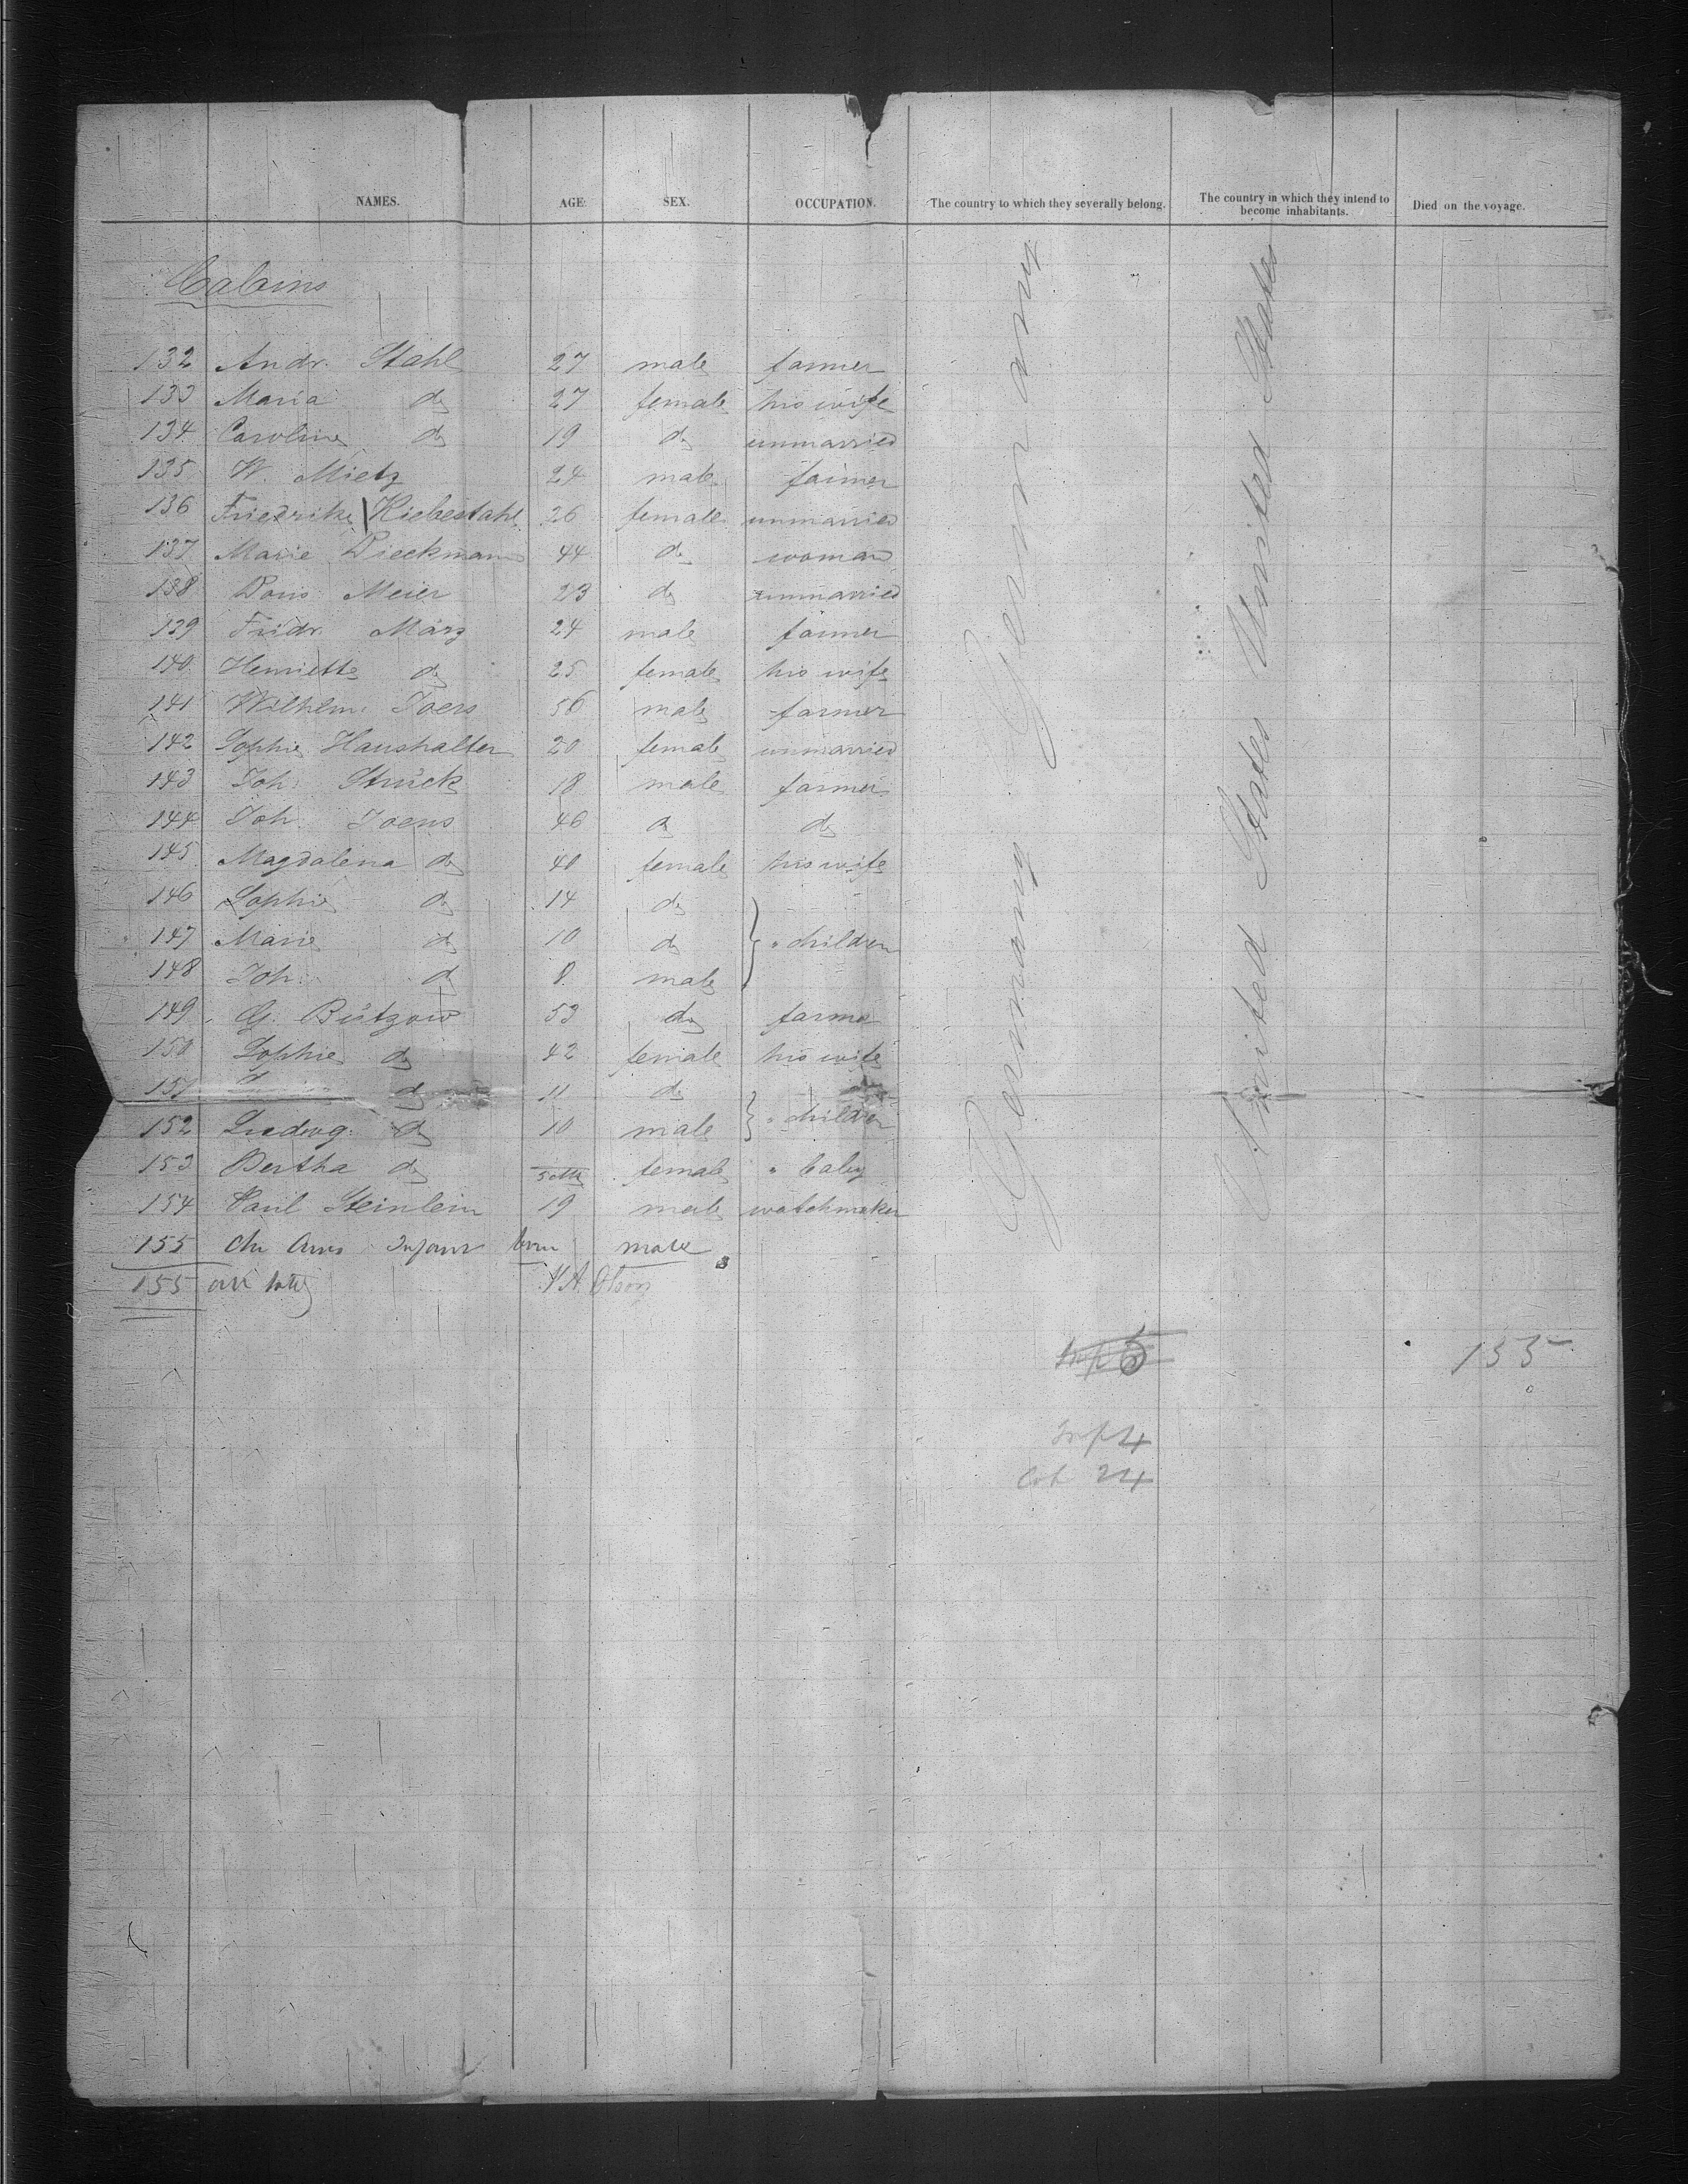 NAMES. AGE. SEX. OCCUPATION. The country to which they severally belong. The country in which they intend to become inhabitants. Died on the voyage.
Cabins
132 Andr. Stahl 27 male farmer
133 Maria do 27 female his wife
134 Caroline do 19 do unmarried
135 W. Mietz 24 male farmer
136 Friedrike Kiebestahl 26 female unmarried
137 Marie Dieckmann 44 do woman
138 Doris Meier 23 do unmarried
139 Fridr. März 24 male farmer
140 Henriette do 25 female his wife
141 Wilhelm Joers 56 male farmer
142 Sophie Haushalter 20 female unmarried
143 Joh. Struck 18 male farmer
144 Joh. Joens 46 do do
145 Magdalena do 40 female his wife
146 Sophie do 14 do
147 Marie do 10 do " children
148 Joh. do 8 male
149 G. Bützow 53 do farmer
150 Sophie do 42 female his wife
151 do 11 do
152 Ludwig do 10 male " children
153 Bertha do 5 Mt female " baby
154 Paul Steinlein 19 male watchmaker
155 Infant born male
155
Germany Germany
United States United States
Inf 5
155
Inf 4
Cab 24